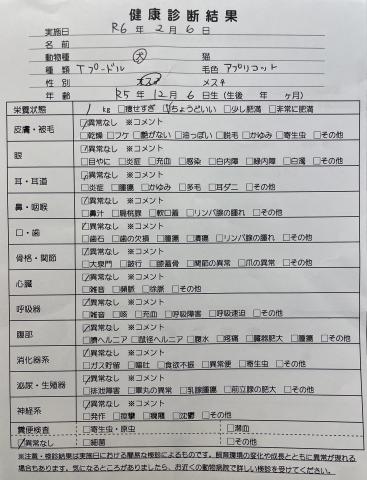 健康診断結果
実施日 R6 年 2 月 6 日
名前
動物種 犬 猫
種類 Tプードル 毛色 アプリコット
性別 オス♂ メス♀
年齢 R5年 12月 6日生(生後 年 ヶ月)
栄養状態 1 kg □痩せすぎ ☑ちょうどいい □少し肥満 □非常に肥満
皮膚・被毛 ☑異常なし ※コメント
□乾燥 □フケ □艶がない □油っぽい □脱毛 □かゆみ □寄生虫 □その他
眼 ☑異常なし ※コメント
□目やに □炎症 □充血 □感染 □白内障 □緑内障 □白濁 □その他
耳・耳道 ☑異常なし ※コメント
□炎症 □腫瘍 □かゆみ □多毛 □耳ダニ □その他
鼻・咽喉 ☑異常なし ※コメント
□鼻汁 □扁桃腺 □軟口蓋 □リンパ腺の腫れ □その他
口・歯 ☑異常なし ※コメント
□歯石 □歯の欠損 □腫瘍 □潰瘍 □リンパ腺の腫れ □その他
骨格・関節 ☑異常なし ※コメント
□大泉門 □跛行 □膝蓋骨 □関節の異常 □爪の異常 □その他
心臓 ☑異常なし ※コメント
□雑音 □頻脈 □徐脈 □その他
呼吸器 ☑異常なし ※コメント
□雑音 □咳 □充血 □呼吸障害 □呼吸速迫 □その他
腹部 ☑異常なし ※コメント
□臍ヘルニア □鼠径ヘルニア □腹水 □疼痛 □臓器肥大 □腫瘍 □その他
消化器系 ☑異常なし ※コメント
□ガス貯留 □嘔吐 □食欲不振 □異常便 □寄生虫 □その他
泌尿・生殖器 ☑異常なし ※コメント
□排泄障害 □睾丸の異常 □乳腺腫瘍 □前立腺の肥大 □その他
神経系 ☑異常なし ※コメント
□発作 □痙攣 □興奮 □沈鬱 □その他
糞便検査 □寄生虫・原虫 □潜血
☑異常なし □細菌 □その他
※注意・検診結果は実施日における簡易な検診によるものです。飼育環境の変化や成長とともに異常が現れる
場合もあります。気になるところがありましたら、お近くの動物病院で詳しい検診を受けてください。